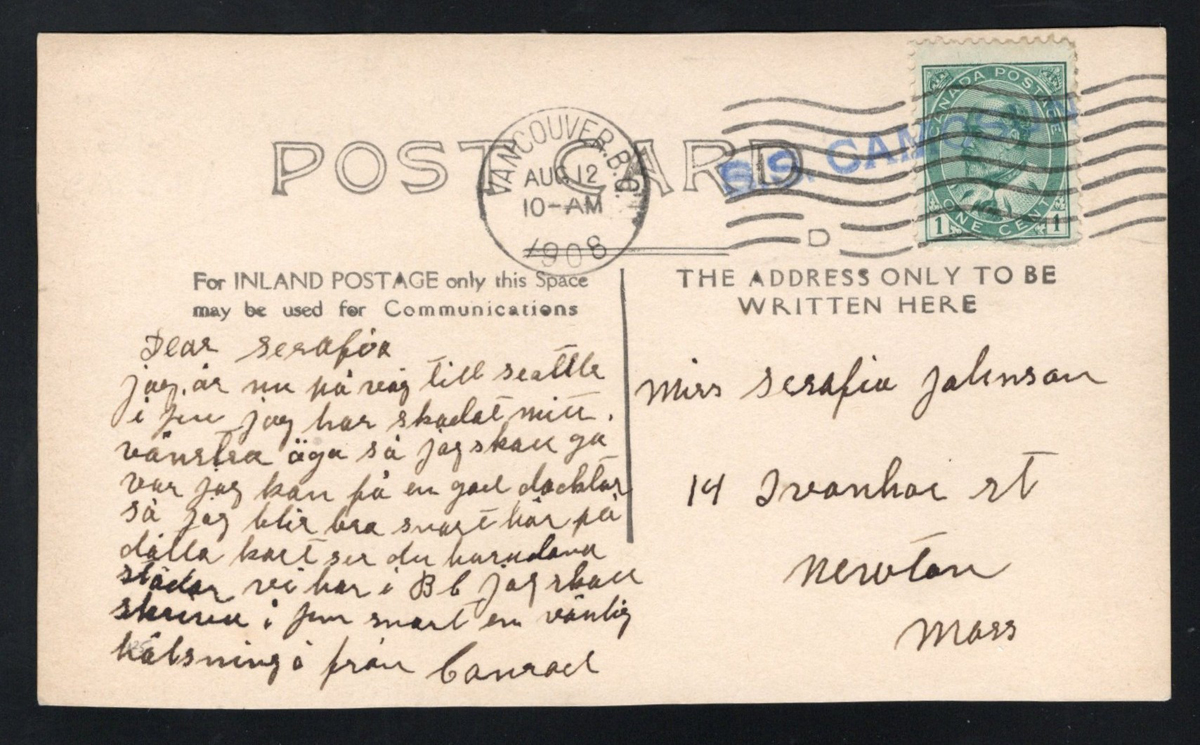 POST CARD
VANCOUVER. B.C.
AUG 12
10-AM
1908
S.S. CAMOSUN
D
CANADA POSTAGE
1 ONE CENT 1
For INLAND POSTAGE only this Space
may be used for Communications
THE ADDRESS ONLY TO BE
WRITTEN HERE
Dear Serafia
jag är nu på väg till seattle
i jen jag har skadat mitt
vänstra öga så jag skall ga
var jag kan få en god docktor
så jag blir bra snart här på
dätta kort ser du huradana
städer vi har i B C jag skall
skriva i jen snart en vänlig
hälsning o från Conrad
Miss Serafia Johnson
14 Ivanhoe st
Newton
Mass